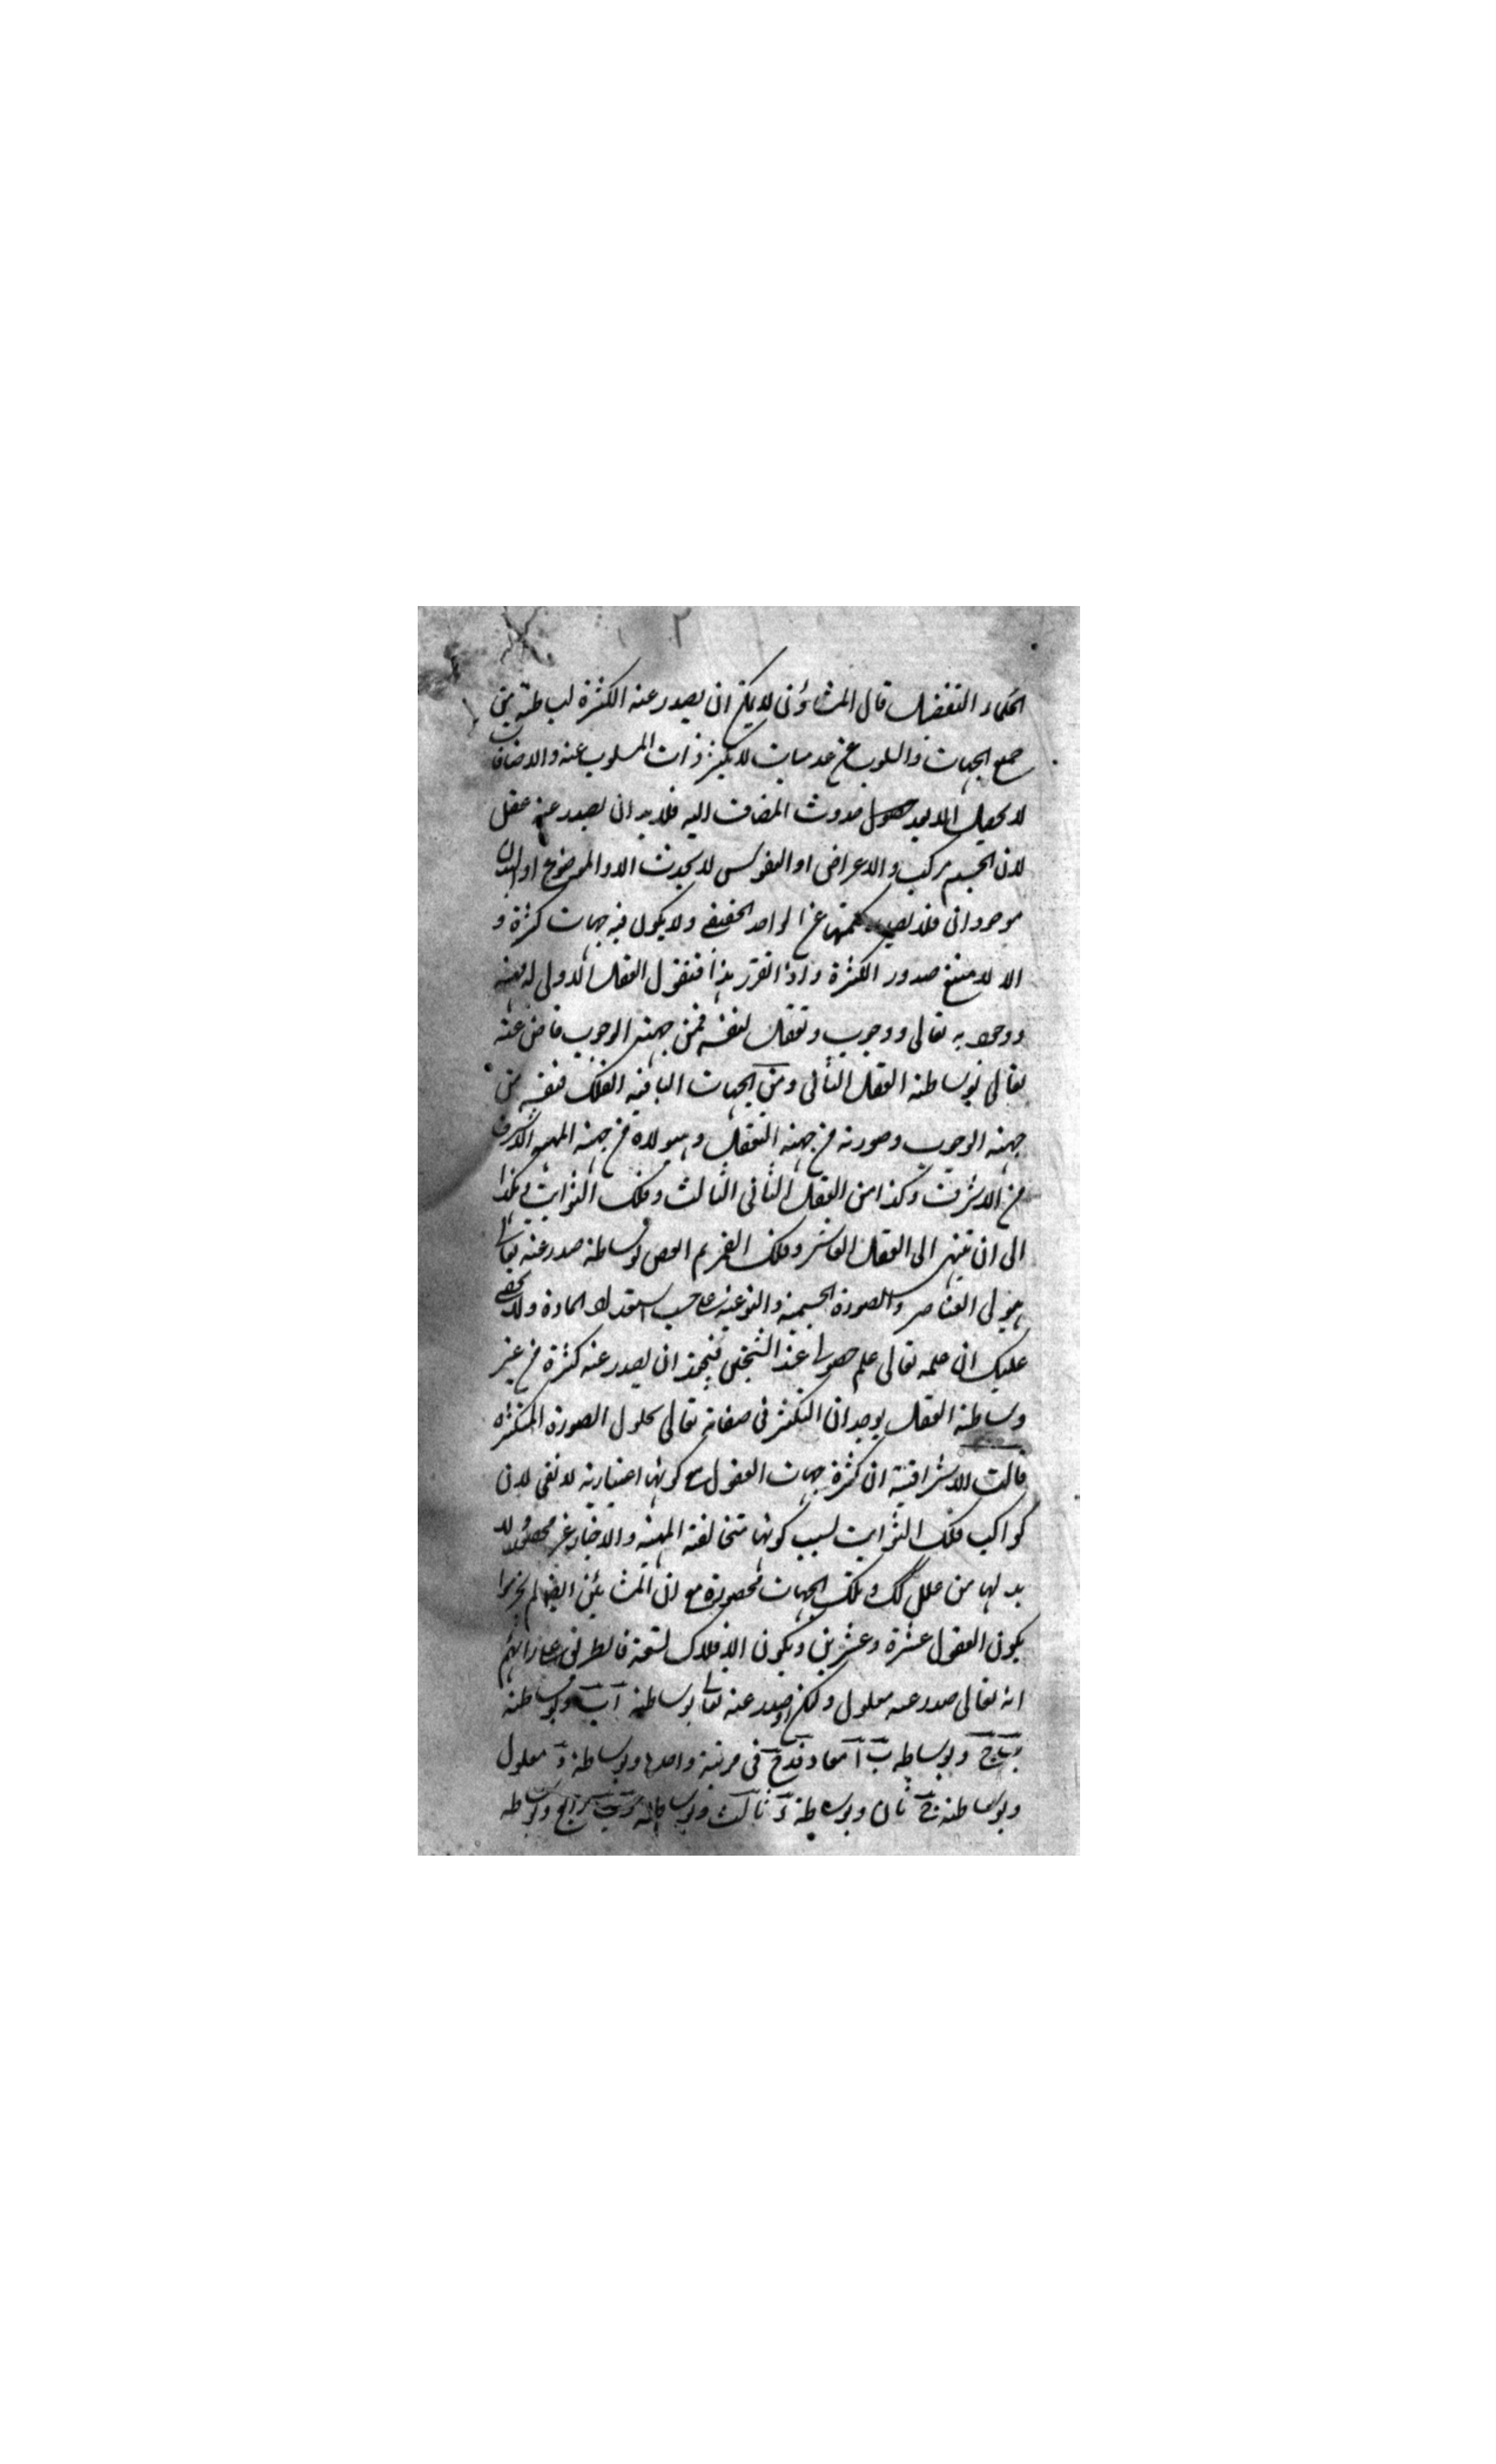 الحكماء التفضيل قال المشاؤن لا يمكن ان يصدر عنه الكثرة لبساطته من
جميع الجهات والسلوب عن عدميات لا يكثر ذات المسلوب عنه والاضافات
لا يحصل الا بعد حدوث المضاف اليه فلا بد ان يصدر عنه عقل
لان الجسم مركب والاعراض او النفوس لا يحدث الا والموضوع او البدن
موجودان فلا عن الواحد الحقيقي ولا يكون فيه جهات كثرة و
الا لامتنع صدور الكثرة واذا تقرر هذا فنقول العقل الاولى له مهية
ووجود به تعالى ووجوب وتعقل لنفسه فمن جهة الوجوب فاض عنه
تعالى بوساطة العقل الثانى ومن الجهات الباقية الفلك فنفسه من
جهة الوجوب وصورته من جهة التعقل وهيولاه من جهة المهية الاشرف
من الاشرف وكذا من العقل الثانى الثالث وفلك الثوابت وهكذا
الى ان تنتهى الى العقل العاشر وفلك القمر ثم العاشر بوساطة صدر عنه تعالى
هيولى العناصر والصورة الجسمية والنوعية على حسب استعداد المادة ولا يخفى
عليك ان علمه تعالى علم حصولى عند الشيخين فيجوز ان يصدر عنه كثرة من غير
وساطة العقل بوجدان التكثر فى صفاته تعالى بحلول الصورة المتكثرة
قالت الاشراقية ان كثرة جهات العقول مع كونها اعتبارية لا تفى لان
كواكب فلك الثوابت لسبب كونها متخالفة المهية والاخبار غير محصورة لا
بد لها من علل كك وتلك الجهات محصورة مع ان المشائين ايضا لم يجزموا
بكون العقول عشرة وعشرين وبكون الافلاك تسعة فالطريق على رايهم
انه تعالى صدر عنه معلول ولكن ا وصدر عنه تعالى بوساطة ا ب وبوساطة
ب ج وبوساطة ب ا معا د فد ج فى مرتبة واحدة وبوساطة د معلول
وبوساطة ج ثان وبوساطة د ثالث وبوساطة رابع وبوساطة